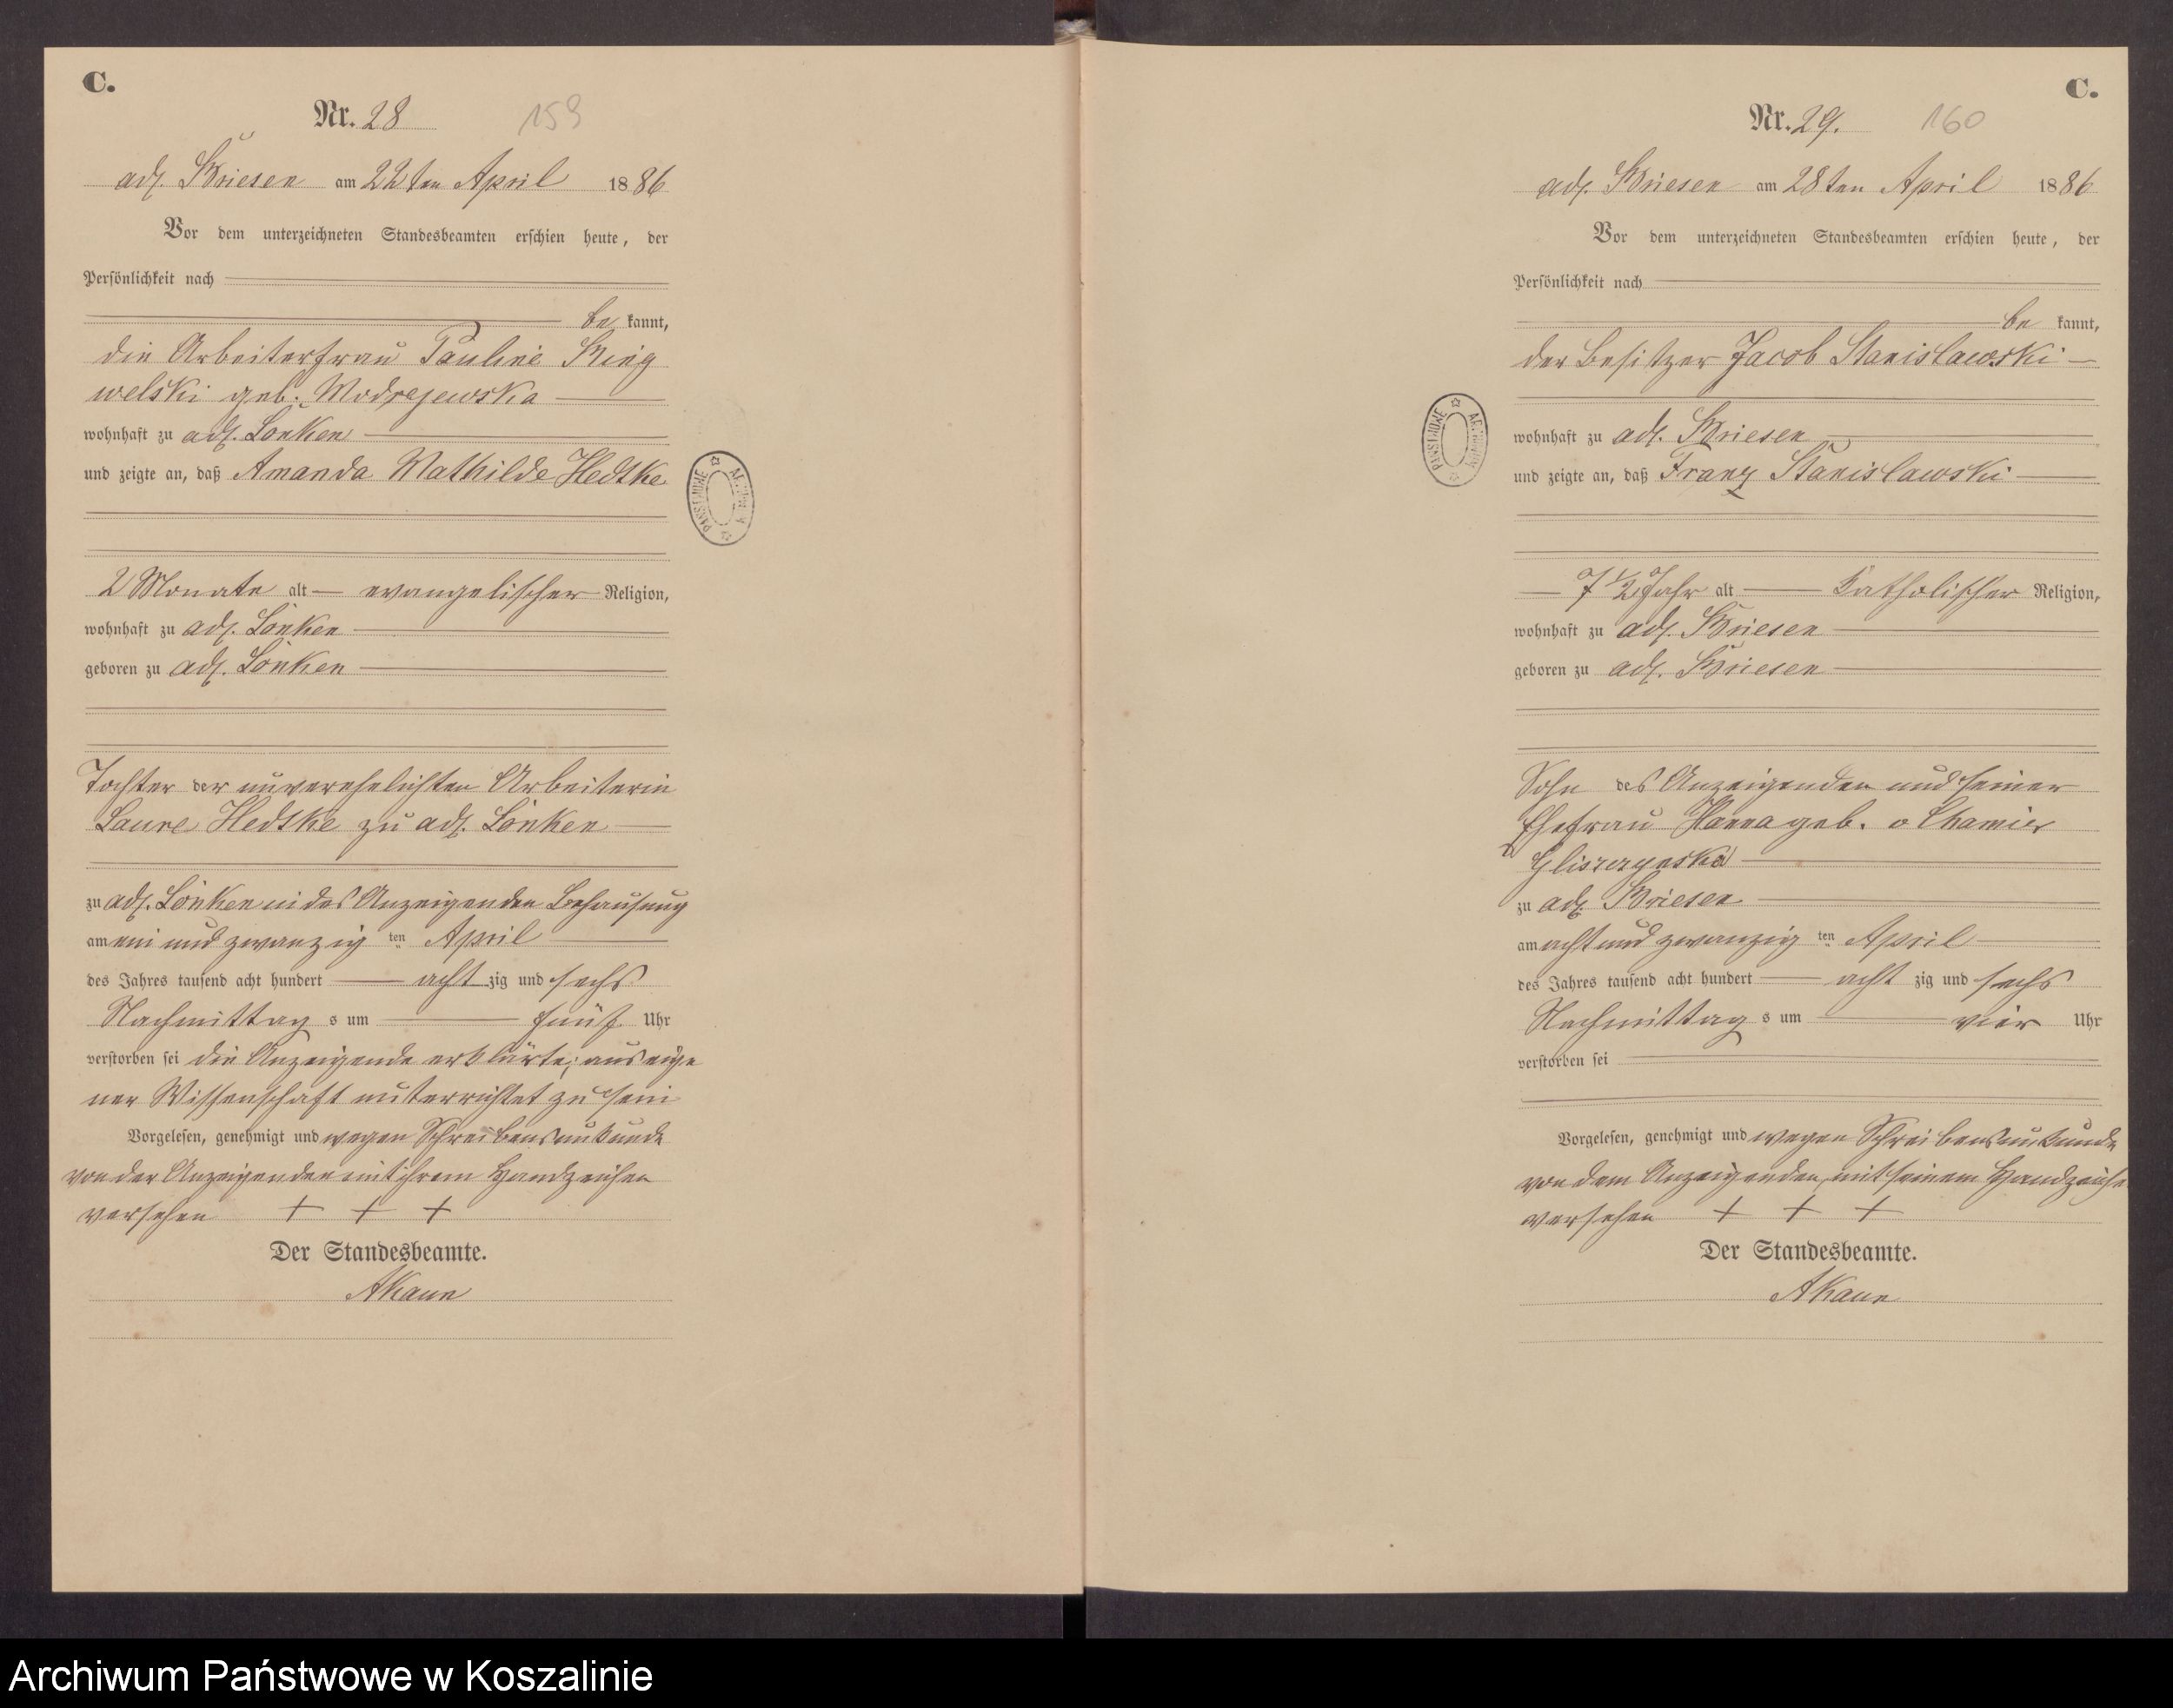 C.
Nr. 28
159
adl. Briesen am 22ten April 1886
Vor dem unterzeichneten Standesbeamten erschien heute, der
Persönlichkeit nach
be kannt,
die Arbeiterfrau Pauline
welski geb. Modrejewska
wohnhaft zu adl. Lonken
und zeigte an, daß Amanda Mathilde Hedtke
2 Monate alt — evangelischer Religion,
wohnhaft zu adl. Lonken
geboren zu adl. Lonken
Tochter der unverehelichten Arbeiterin
Laure Hedtke zu adl. Lonken
zu adl. Lonken in des Anzeigenden Behausung
am ein und zwanzig ten April
des Jahres tausend acht hundert — acht zig und sechs
Nachmittag s um — fünf Uhr
verstorben sei die Anzeigende erklärte; aus eige
ner Wissenschaft unterrichtet zu sein
Vorgelesen, genehmigt und wegen Schreibensunkunde
von der Anzeigenden mit ihrem Handzeichen
versehen + + +
Der Standesbeamte.
PAŃSTWOWE
C.
Nr. 29.
160
adl. Briesen am 28ten April 1886
Vor dem unterzeichneten Standesbeamten erschien heute, der
Persönlichkeit nach
be kannt,
der Besitzer Jacob Stanislawski —
wohnhaft zu adl. Briesen
und zeigte an, daß Franz Stanislawski
— 7 1/2 Jahr alt — Katholischer Religion,
wohnhaft zu adl. Briesen
geboren zu adl. Briesen
Sohn des Anzeigenden und seiner
Ehefrau Hanna geb. v Chamier
Gliszczynska
zu adl. Briesen
am acht und zwanzig ten April
des Jahres tausend acht hundert — acht zig und sechs
Nachmittag s um — vier Uhr
verstorben sei
Vorgelesen, genehmigt und wegen Schreibensunkunde
von dem Anzeigenden mit seinem Handzeiche
versehen + + +
Der Standesbeamte.
PAŃSTWOWE
Archiwum Państwowe w Koszalinie